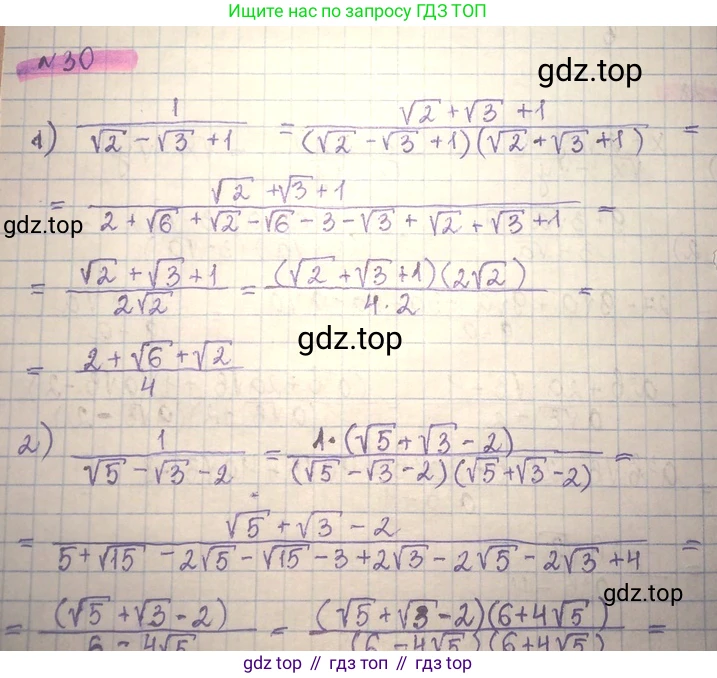 Ищите нас по запросу ГДЗ.ТОП
№30
gdz.top
1) 1/(√2 - √3 + 1) = (√2 + √3 + 1)/((√2 - √3 + 1)(√2 + √3 + 1)) =
= (√2 + √3 + 1)/(2 + √6 + √2 - √6 - 3 - √3 + √2 + √3 + 1) =
gdz.top
= (√2 + √3 + 1)/(2√2) = ((√2 + √3 + 1)(2√2))/(4·2) =
gdz.top
= (2 + √6 + √2)/4
2) 1/(√5 - √3 - 2) = (1·(√5 + √3 - 2))/((√5 - √3 - 2)(√5 + √3 - 2)) =
= (√5 + √3 - 2)/(5 + √15 - 2√5 - √15 - 3 + 2√3 - 2√5 - 2√3 + 4) =
gdz.top
= (√5 + √3 - 2)/(6 - 4√5) = ((√5 + √3 - 2)(6 + 4√5))/((6 - 4√5)(6 + 4√5)) =
gdz top // гдз топ // gdz.top